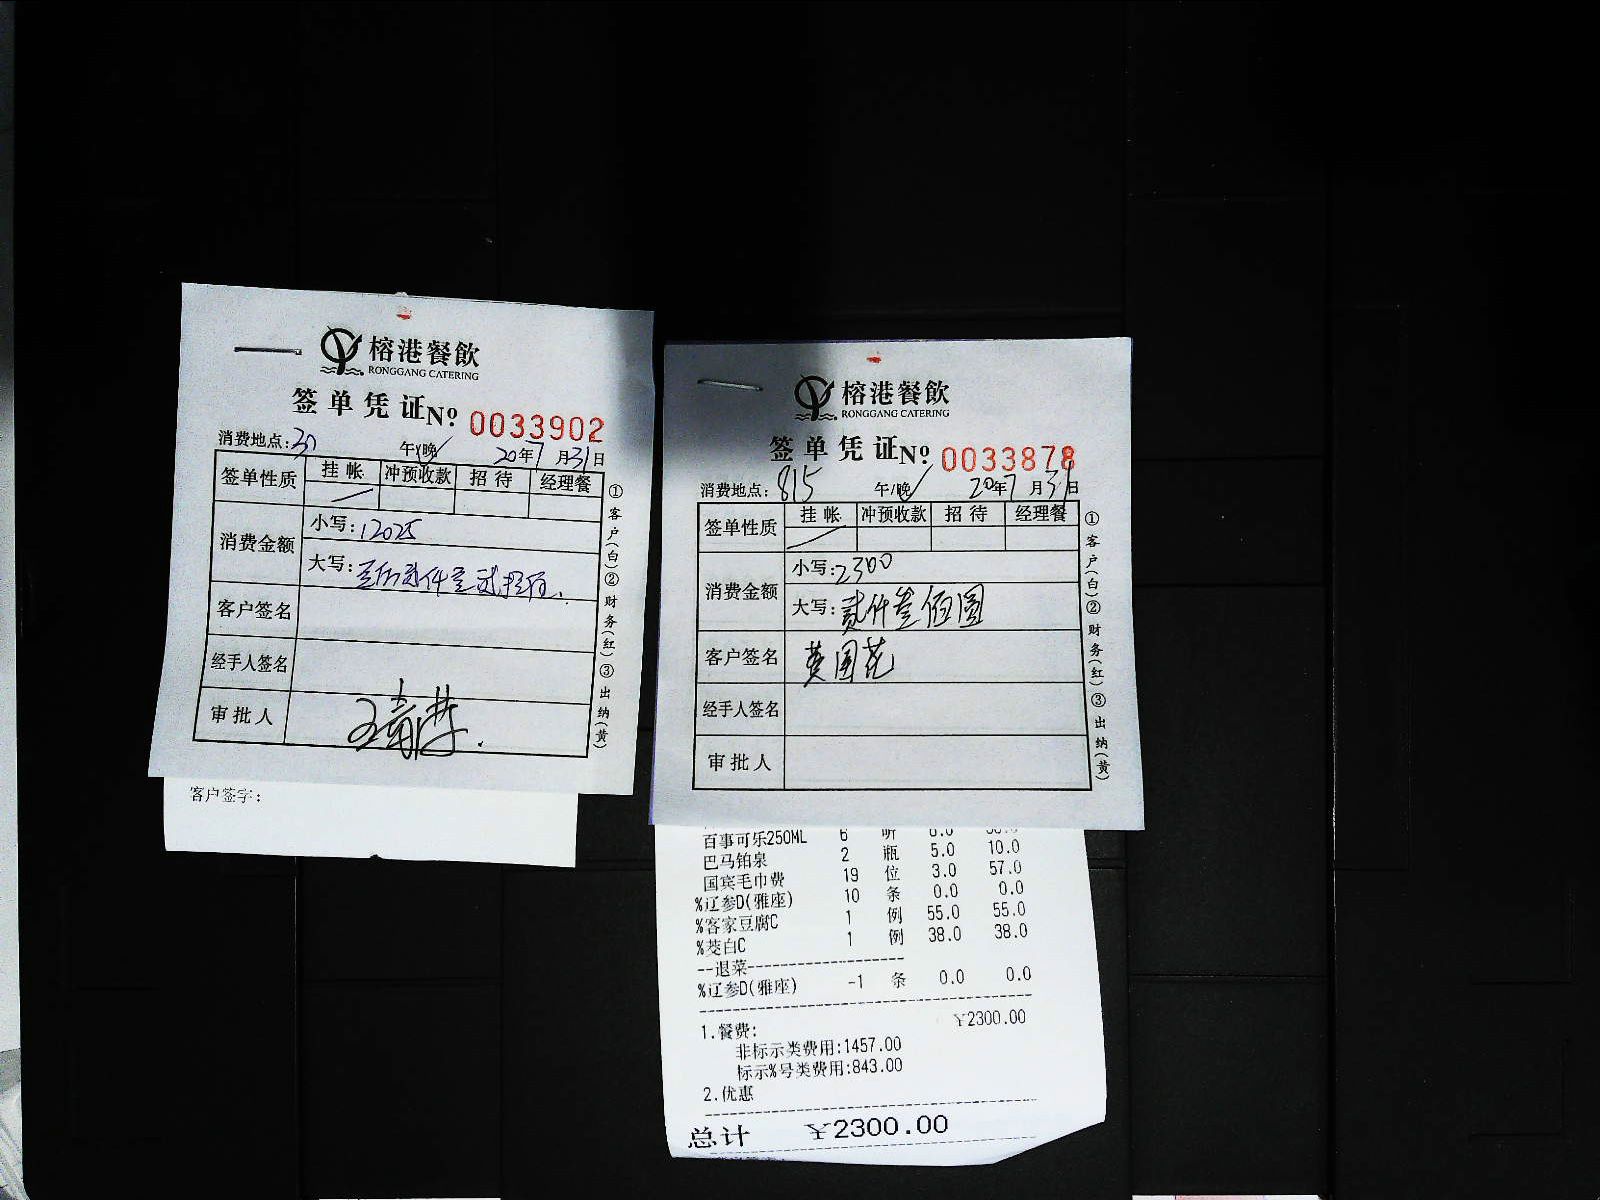 榕港餐飲
RONGGANG CATERING
签单凭证 No 0033902
消费地点: 午/晚 20年7月31日
签单性质 挂帐 冲预收款 招待 经理餐
消费金额 小写: 12025
大写:
客户签名
经手人签名
审批人
①客户(白)②财务(红)③出纳(黄)
客户签字:
榕港餐飲
RONGGANG CATERING
签单凭证 No 0033878
消费地点: 815 午/晚 20年7月31日
签单性质 挂帐 冲预收款 招待 经理餐
消费金额 小写: 2300
大写: 贰仟叁佰圆
客户签名 黄国花
经手人签名
审批人
①客户(白)②财务(红)③出纳(黄)
百事可乐250ML 6 听
巴马铂泉 2 瓶 5.0 10.0
国宾毛巾费 19 位 3.0 57.0
%辽参D(雅座) 10 条 0.0 0.0
%客家豆腐C 1 例 55.0 55.0
%茭白C 1 例 38.0 38.0
--退菜--------------------
%辽参D(雅座) -1 条 0.0 0.0
1.餐费: ¥2300.00
非标示类费用:1457.00
标示%号类费用:843.00
2.优惠
总计 ¥2300.00